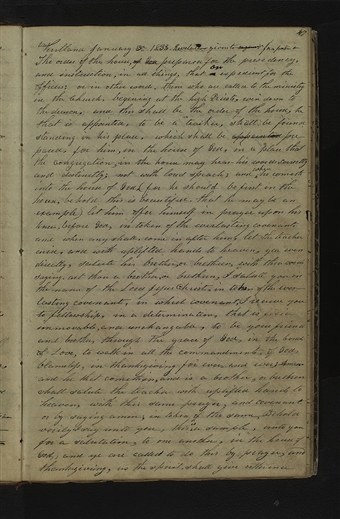 Kirtland January 3d 1833
The order of the house of God prepared for the presidency,
and instruction in all things, that is expedient for the
officers or in other words, them who are called to the ministry
in the Church, begining at the high Priests, even down to
the deacon, and this shall be the order of the house, he
that is appointed to be a teacher, shall be found
standing in his place, which shall be pre-
pared for him, in the house of God, in a place that
the congregation in the house may hear his words correctly
and distinctly, not with loud speech, and when he cometh
into the house of God, (for he should be first in the
house, behold this is beautiful, that he may be an
example) let him offer himself in prayer upon his
knees before God, in token of the everlasting covenant
and when any shall come in after him, let the teacher
arise, and with uplifted hands to heaven, yea even
directly, salute his brother or brethren, with these words
saying, art thou a brother or brethren, I salute you in
the name of the Lord Jesus Christ, in token of the ever-
lasting covenant, in which covenant, I receive you
to fellowship, in a determination, that is fixed
immovable, and unchangable, to be your friend
and brother, through the grace of God, in the bond
of Love, to walk in all the commandments, of God
blameless, in thanksgiving, for ever and ever,
and he that cometh in, and is a brother, or brethren
shall salute the teacher with uplifted hands to
heaven, with this same prayer, and covenant
or by saying amen, in token of the same, Behold
verily I say unto you, this is a sample, unto you
for a salutation, to one another, in the house of
God, and ye are called to do this by prayer, and
thanksgiving, as the spirit shall give utterance